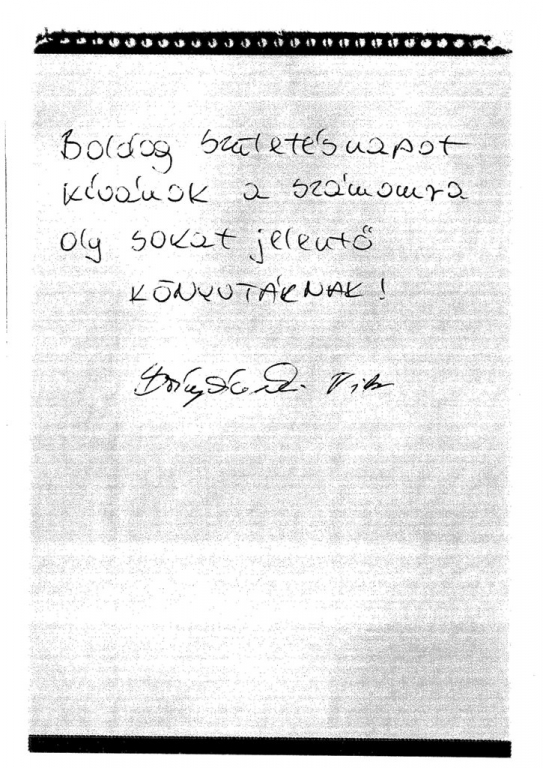 Boldog születésnapot
kívánok a számomra
oly sokat jelentő
KÖNYVTÁRNAK!